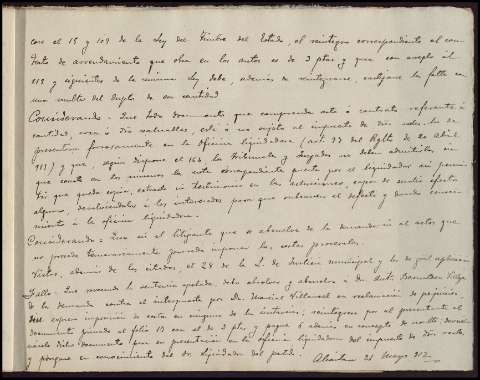 con el 15 y 109 de la Ley del Timbre del Estado, el reintegro correspondiente al con-
trato de arrendamiento que obra en los autos es de 3 ptas, y que con arreglo al
y siguientes de la misma Ley debe, además de reintegrarse, castigarse la falta con
una multa del duplo de su cantidad
Considerando: Que todo documento que comprenda acto ó contrato referente á
cantidad, cosa ó dro valuables, esté ó no sujeto al impuesto de dros reales, ha de
presentarse forzosamente en la oficina liquidadora (art. del Rglto de 20 Abril
911) y que, según dispone el 164, los Tribunales y Juzgados no deben admitirlos, sin
que conste en los mismos la nota correspondiente puesta por el liquidador sin permi-
tir que quede copia, extracto ni testimonio en las actuaciones, capaz de surtir efecto
alguno, devolviéndolos á los interesados para que subsanen el defecto y dando conoci-
miento á la oficina liquidadora.
Considerando: Que ni el litigante que es absuelto de la demanda ni al actor que
no procede temerariamente procede imponer las costas procesales.
Vistos, además de los citados, el 28 de la L. de Justicia municipal y los de gral aplicación
Fallo: Que revocando la sentencia apelada, debo absolver y absuelvo á Dn
de la demanda contra él interpuesta por Dn Marino Villanual en reclamación de perjuicios,
sin expresa imposición de costas en ninguna de las instancias; reintégrese por el presentante el
documento privado al folio 13 con el de 3 ptas, y pague 6 además en concepto de multa, devuél-
vasele dicho documento para su presentación en la oficina liquidadora del impuesto de Dros reales,
y póngase en conocimiento del Sr. liquidador del partido. 21 Mayo 912